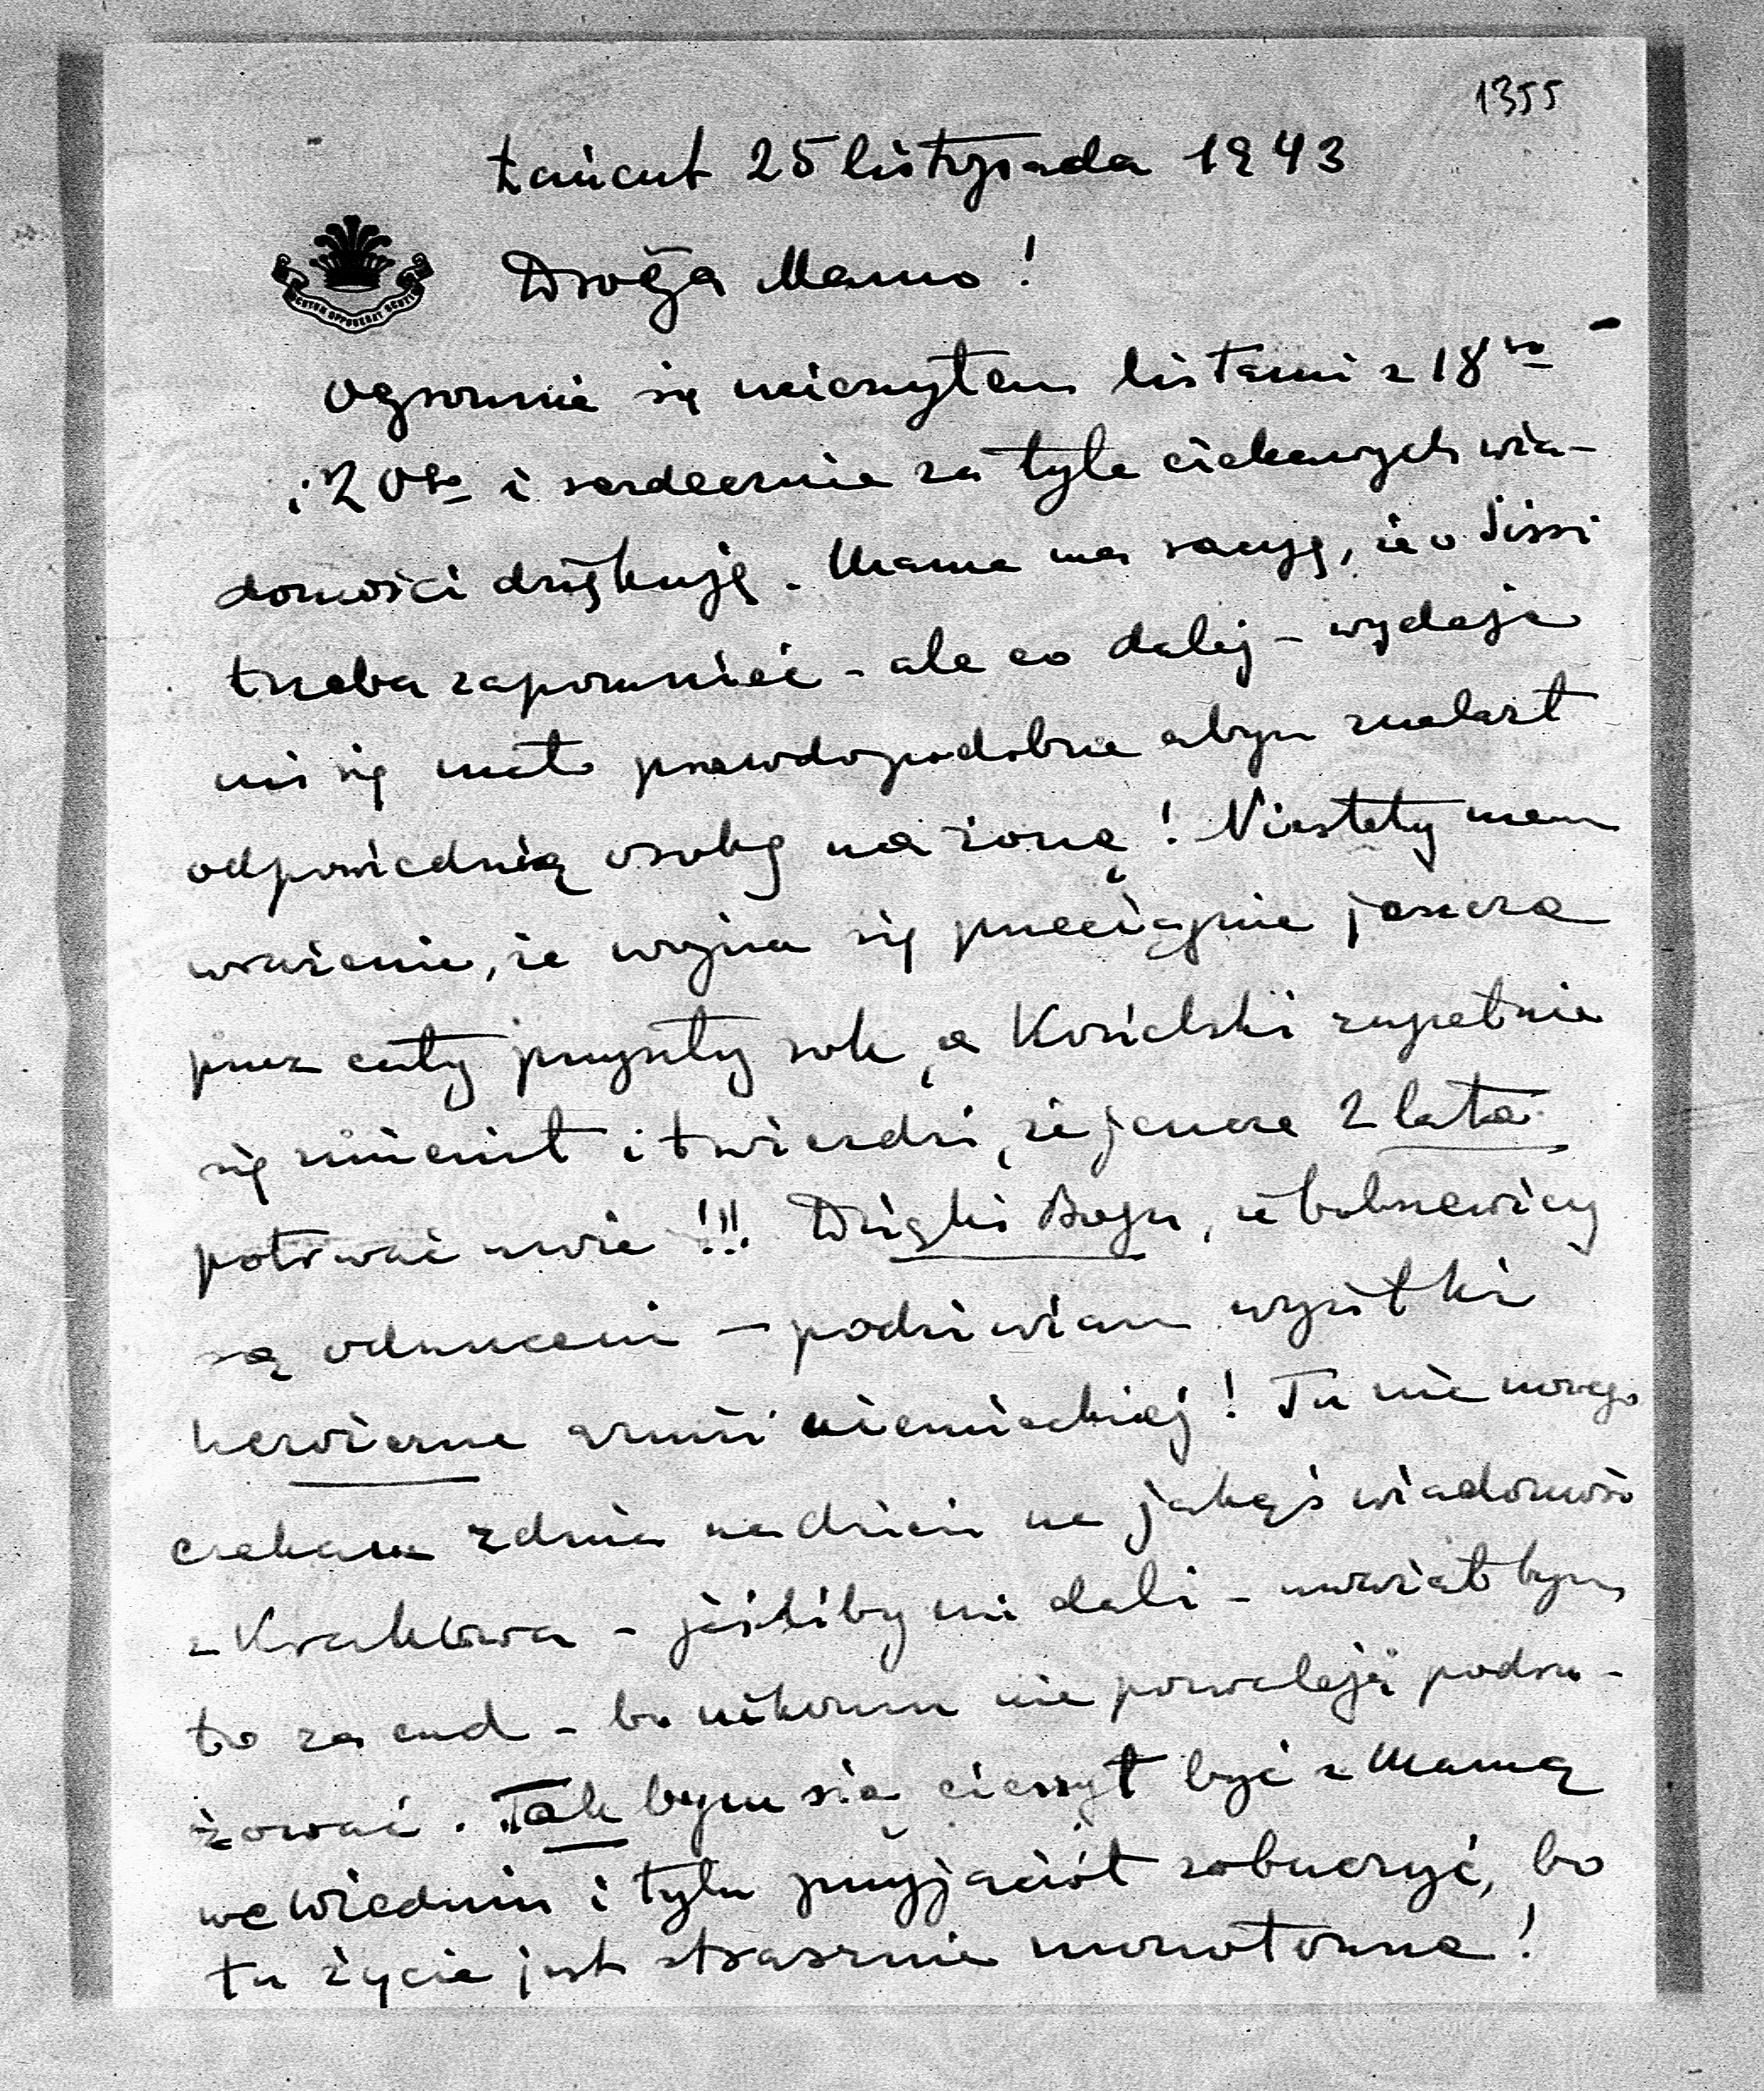 1355
Łańcut 25 listopada 1943
SCUTUM OPPONEBAT SCUTIS
Droga Mamo!
Ogromnie się ucieszyłem listami z 18go
i 20go i serdecznie za tyle ciekawych wia-
domości dziękuję. Mama ma rację, że o Sissi
trzeba zapomnieć - ale co dalej - wydaje
mi się mało prawdopodobne abym znalazł
odpowiednią osobę na żonę! Niestety mam
wrażenie, że wojna się przeciągnie jeszcze
przez cały przyszły rok, a Kosielski zupełnie
się zmienił i twierdzi, że jeszcze 2 lata
potrwać może!!! Dzięki Bogu, że bolszewicy
są odrzuceni — podziwiam wysiłki
heroiczne armii niemieckiej! Tu nic nowego
czekam z dnia na dzień na jakąś wiadomość
z Krakowa - jeśliby mi dali - uważałbym
to za cud - bo nikomu nie pozwalają podró-
żować. Tak bym się cieszył być z Mamą
we Wiedniu i tylu przyjaciół zobaczyć, bo
tu życie jest strasznie monotonne!